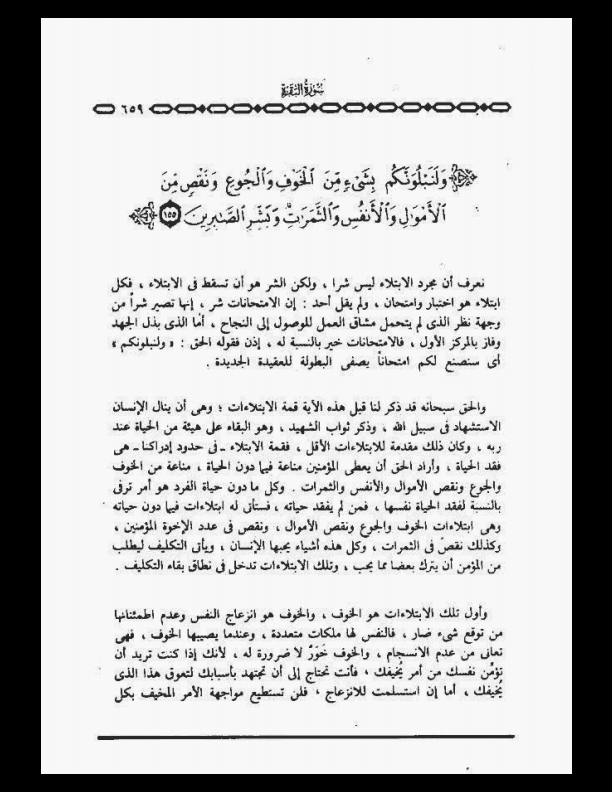 سورة البقرة
٦٥٩
وَلَنَبْلُوَنَّكُم بِشَىْءٍ مِّنَ ٱلْخَوْفِ وَٱلْجُوعِ وَنَقْصٍ مِّنَ
ٱلْأَمْوَٰلِ وَٱلْأَنفُسِ وَٱلثَّمَرَٰتِ وَبَشِّرِ ٱلصَّٰبِرِينَ ١٥٥
نعرف أن مجرد الابتلاء ليس شرا ، ولكن الشر هو أن تسقط فى الابتلاء ، فكل
ابتلاء هو اختبار وامتحان ، ولم يقل أحد : إن الامتحانات شر ، إنها تصير شراً من
وجهة نظر الذى لم يتحمل مشاق العمل للوصول إلى النجاح ، أما الذى بذل الجهد
وفاز بالمركز الأول ، فالامتحانات خير بالنسبة له ، إذن فقوله الحق : « ولنبلونكم »
أى سنصنع لكم امتحاناً يصفى البطولة للعقيدة الجديدة .
والحق سبحانه قد ذكر لنا قبل هذه الآية قمة الابتلاءات ؛ وهى أن ينال الإنسان
الاستشهاد فى سبيل الله ، وذكر ثواب الشهيد ، وهو البقاء على هيئة من الحياة عند
ربه ، وكان ذلك مقدمة للابتلاءات الأقل ، فقمة الابتلاء ـ فى حدود إدراكنا ـ هى
فقد الحياة ، وأراد الحق أن يعطى المؤمنين مناعة فيما دون الحياة ، مناعة من الخوف
والجوع ونقص الأموال والأنفس والثمرات . وكل ما دون حياة الفرد هو أمر ترفى
بالنسبة لفقد الحياة نفسها ، فمن لم يفقد حياته ، فستأتى له ابتلاءات فيما دون حياته
وهى ابتلاءات الخوف والجوع ونقص الأموال ، ونقص فى عدد الإخوة المؤمنين ،
وكذلك نقصٌ فى الثمرات ، وكل هذه أشياء يحبها الإنسان ، ويأتى التكليف ليطلب
من المؤمن أن يترك بعضا مما يحب ، وتلك الابتلاءات تدخل فى نطاق بقاء التكليف .
وأول تلك الابتلاءات هو الخوف ، والخوف هو انزعاج النفس وعدم اطمئنانها
من توقع شىء ضار ، فالنفس لها ملكات متعددة ، وعندما يصيبها الخوف ، فهى
تعانى من عدم الانسجام ، والخوف خَوَرٌ لا ضرورة له ، لأنك إذا كنت تريد أن
تؤمّن نفسك من أمر يُخيفك ، فأنت تحتاج إلى أن تجتهد بأسبابك لتعوق هذا الذى
يُخيفك ، أما إن استسلمت للانزعاج ، فلن تستطيع مواجهة الأمر المخيف بكل